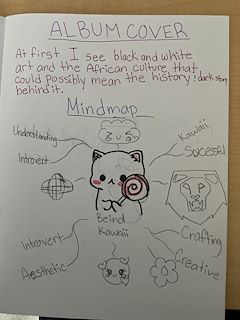 ALBUM COVER
At first I see black and white
art and the African culture that
could possibly mean the history & dark story
behind it.
Mindmap
Understanding
Kawaii
Introvert
Sucessful
Beind
Kawaii
Introvert
Crafting
Aesthetic
Creative